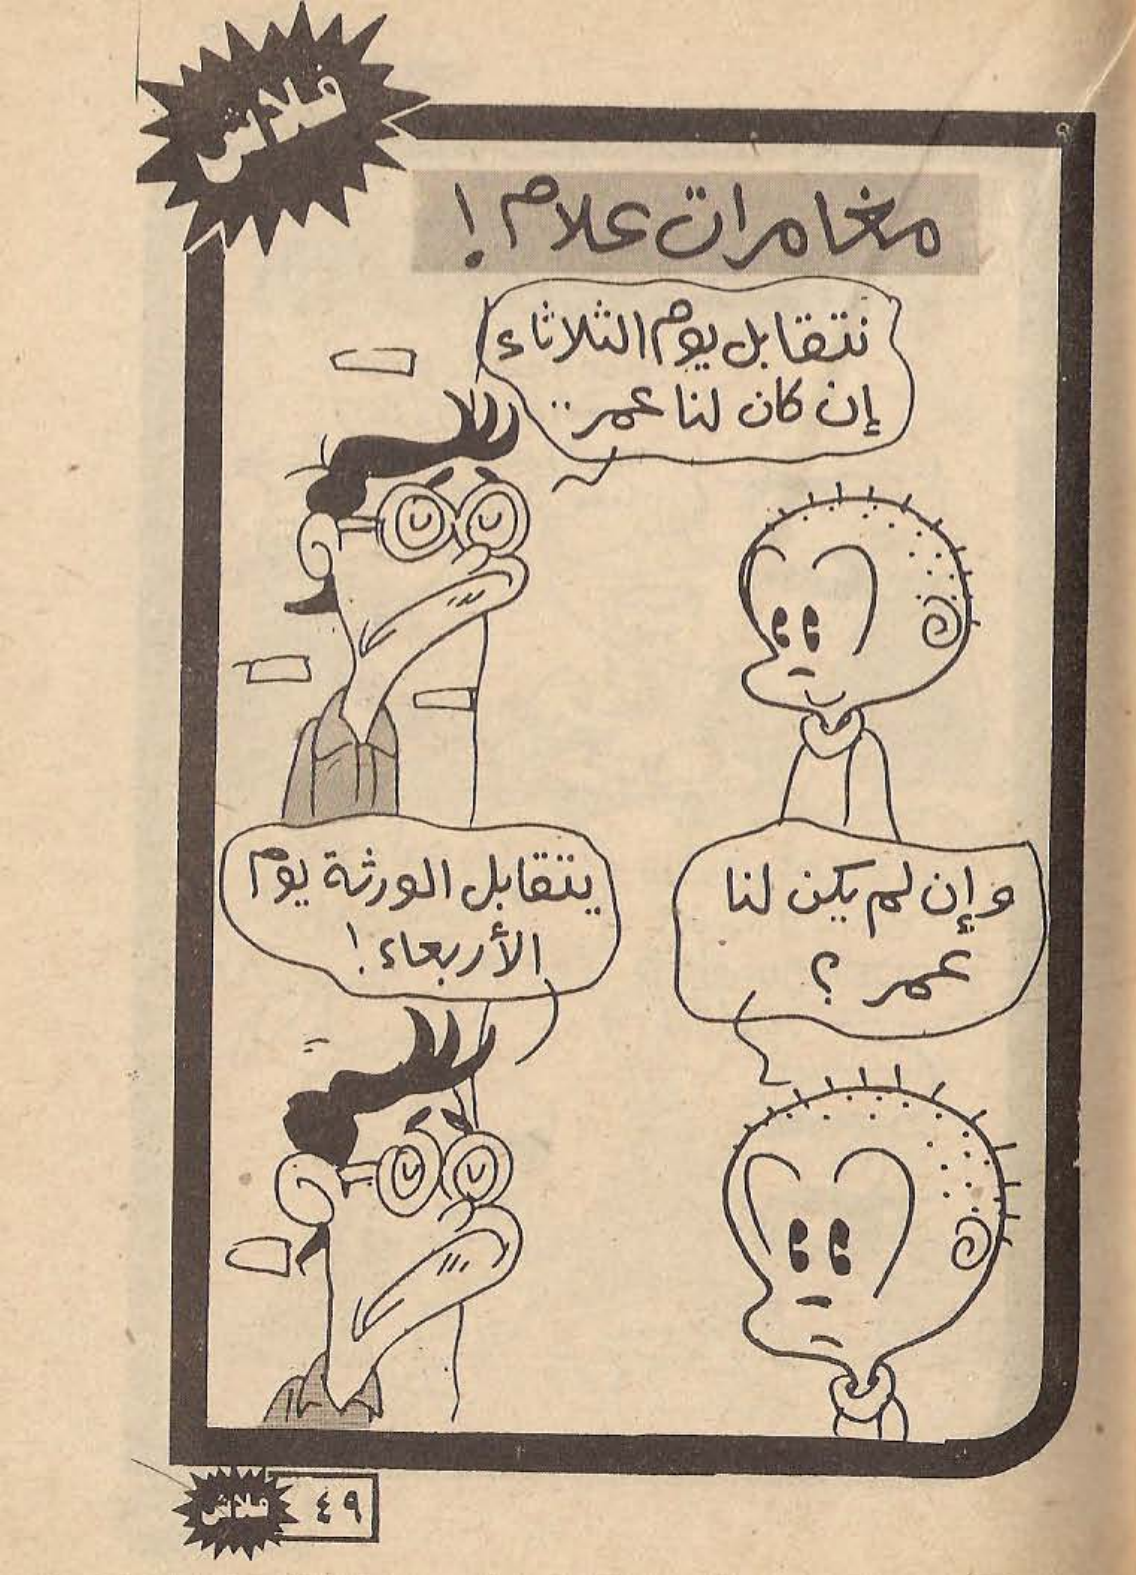 فلاش
مغامرات علام!
نتقابل يوم الثلاثاء
إن كان لنا عمر..
وإن لم يكن لنا
عمر؟
يتقابل الورثة يوم
الأربعاء!
فلاش
٤٩